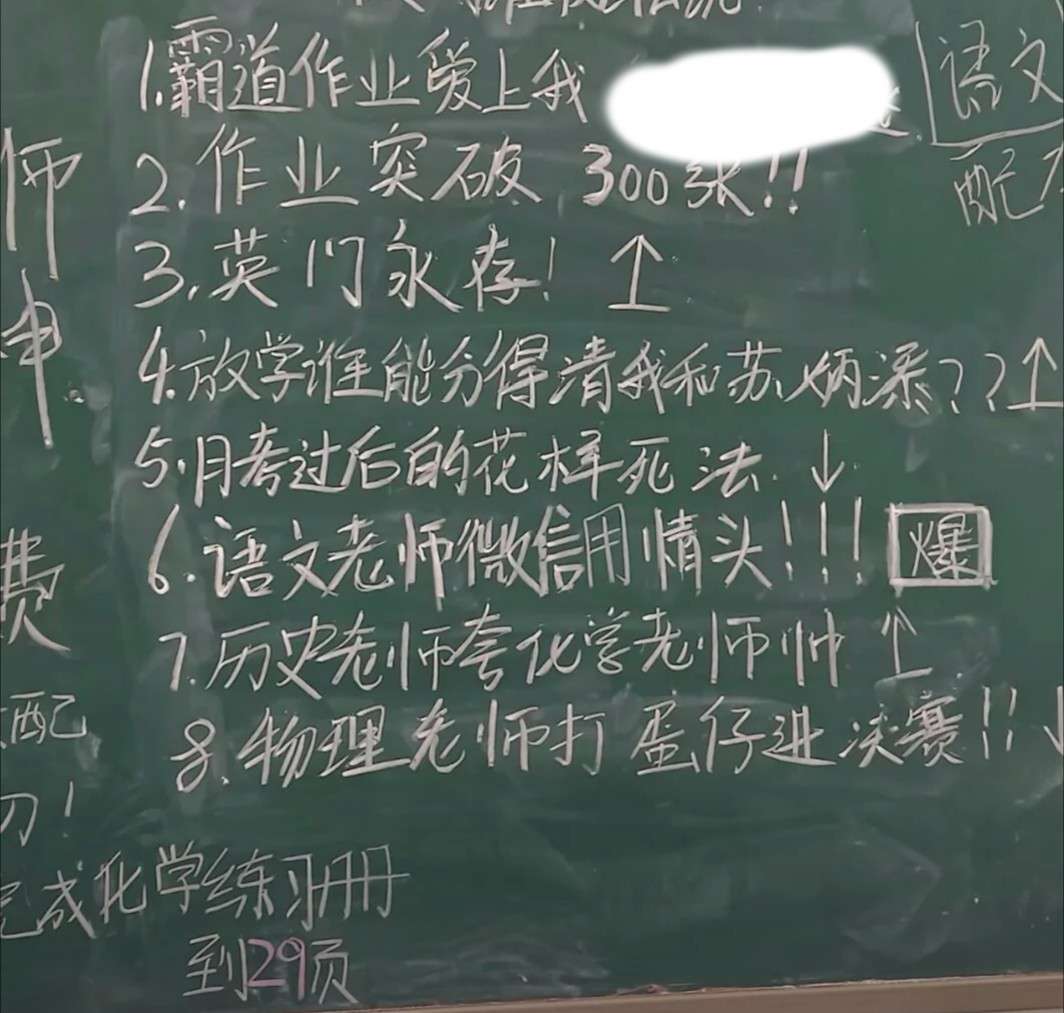 1.霸道作业爱上我
2.作业突破 300张!!
3.英门永存! ↑
4.放学谁能分得清我和苏炳添??↑
5.月考过后的花样死法.↓
6.语文老师微信用情头!!!爆
7.历史老师夸化学老师帅 ↑
8.物理老师打蛋仔进决赛!!
完成化学练习册
到29页
语文
配
师
申
费
配